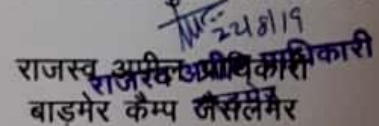 22/8/19
राजस्व अपील अधिकारी
राजस्व अपील अधिकारी
बाड़मेर कैम्प जैसलमेर